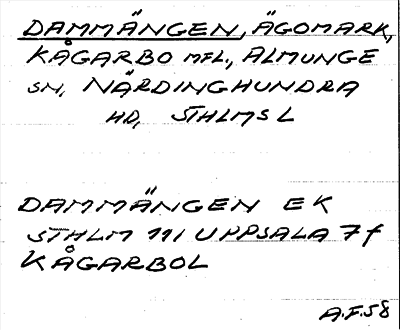 DAMMÄNGEN, ÄGOMARK,
KÅGARBO MFL., ALMUNGE
SN, NÄRDINGHUNDRA
HD, STHLMS L
DAMMÄNGEN EK
STHLM 111 UPPSALA 7 f
KÅGARBOL
A.F.58